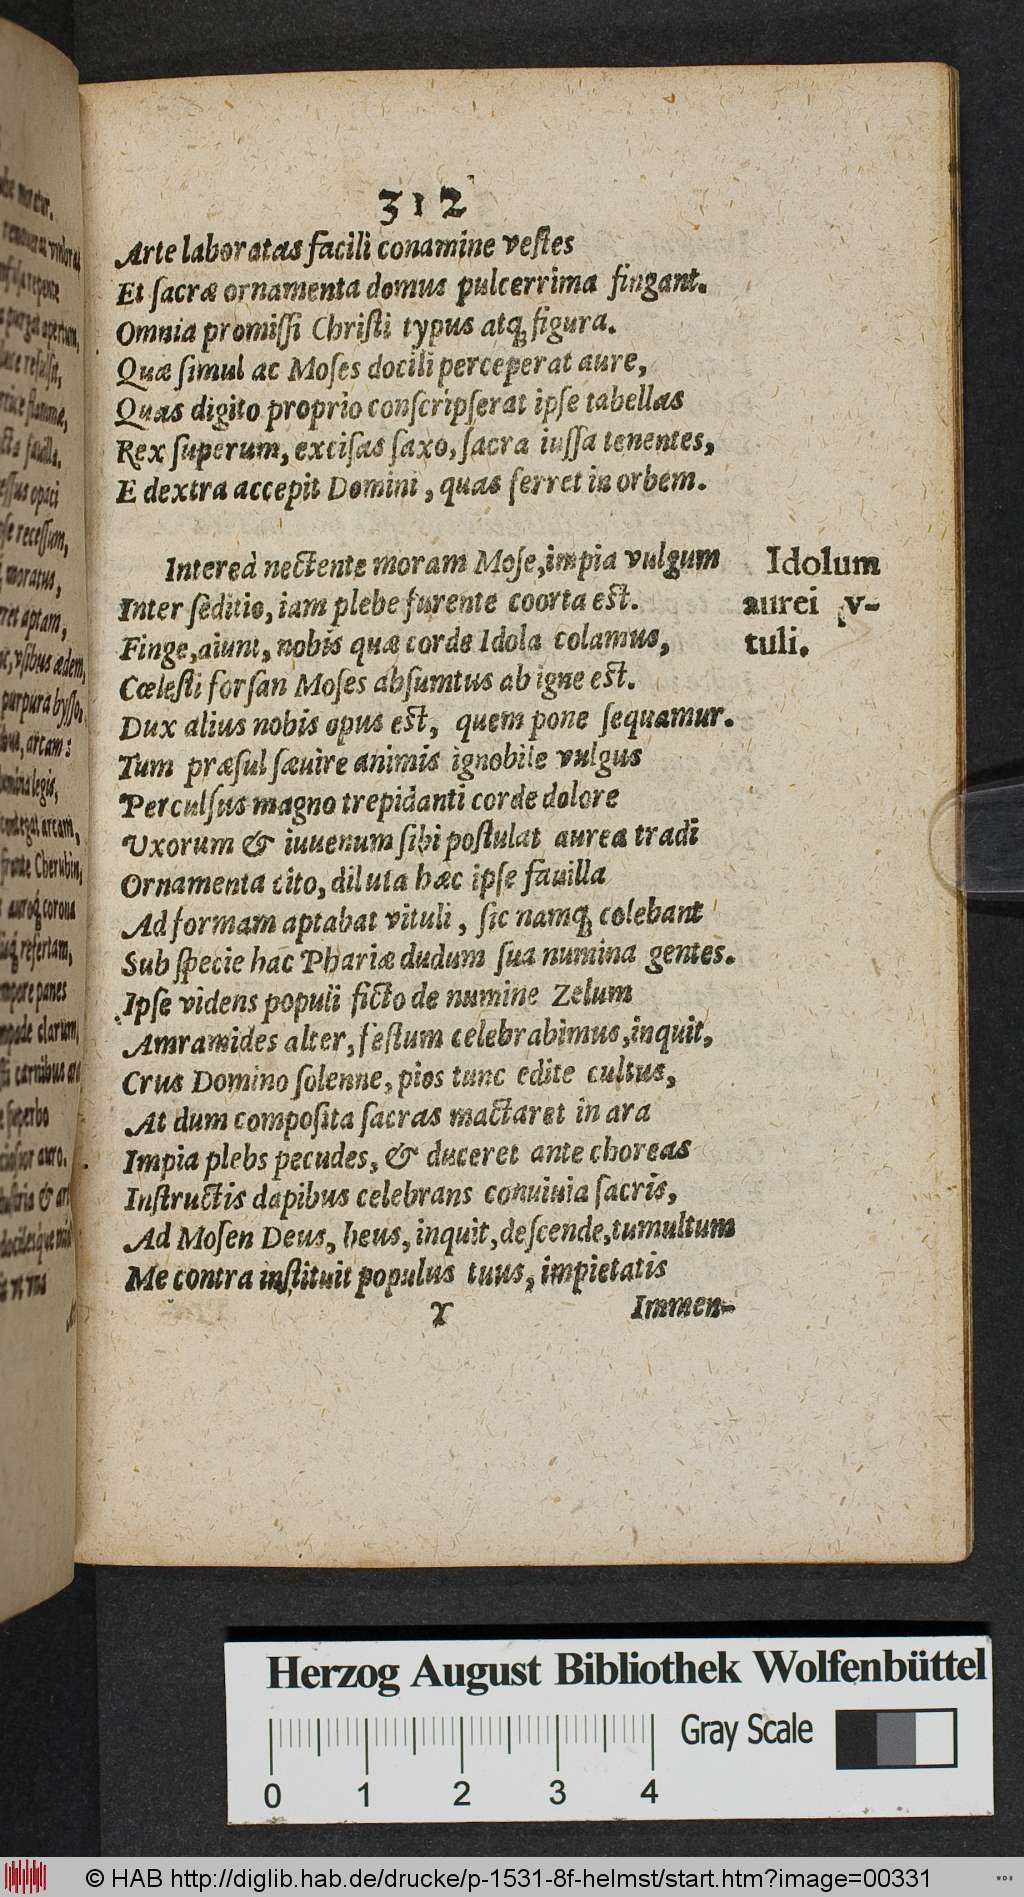 312
Arte laboratas facili conamine veſtes
Et ſacræ ornamenta domus pulcerrima fingant.
Omnia promiſſi Chriſti typus atq; figura.
Quæ ſimul ac Moſes docili perceperat aure,
Quas digito proprio conſcripſerat ipſe tabellas
Rex ſuperum, exciſas ſaxo, ſacra iuſſa tenentes,
E dextra accepit Domini, quas ferret in orbem.
Intereà nectente moram Moſe, impia vulgum
Inter ſeditio, iam plebe furente coorta eſt.
Finge, aiunt, nobis quæ corde Idola colamus,
Cœleſti forſan Moſes abſumtus ab igne eſt.
Dux alius nobis opus eſt, quem pone ſequamur.
Tum præſul ſæuire animis ignobile vulgus
Perculſus magno trepidanti corde dolore
Uxorum & iuuenum ſibi poſtulat aurea tradi
Ornamenta cito, diluta hæc ipſe fauilla
Ad formam aptabat vituli, ſic namq; colebant
Sub ſpecie hac Phariæ dudum ſua numina gentes.
Ipſe videns populi ficto de numine Zelum
Amramides alter, feſtum celebrabimus, inquit,
Crus Domino ſolenne, pios tunc edite cultus,
At dum compoſita ſacras mactaret in ara
Impia plebs pecudes, & duceret ante choreas
Inſtructis dapibus celebrans conuiuia ſacris,
Ad Moſen Deus, heus, inquit, deſcende, tumultum
Me contra inſtituit populus tuus, impietatis
Υ Immen-
Idolum
aurei v-
tuli.
Herzog August Bibliothek Wolfenbüttel
Gray Scale
0 1 2 3 4
© HAB http://diglib.hab.de/drucke/p-1531-8f-helmst/start.htm?image=00331